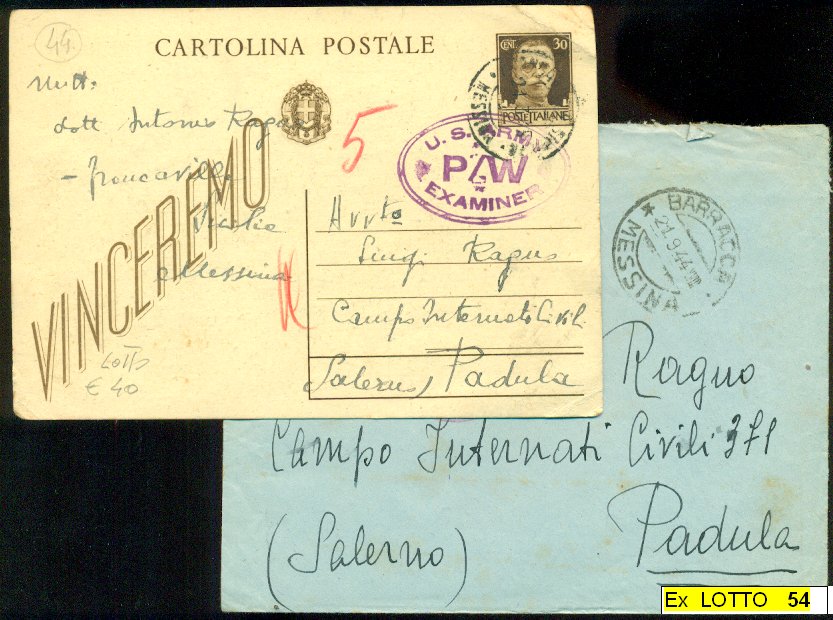 44.
CARTOLINA POSTALE
CENT. 30
POSTE ITALIANE
Mitt.
Dott Antonio Ragu
Francavilla
Sicilia
Messina
VINCEREMO
5
U.S. ARMY
P/W
EXAMINER
Avvto
Luigi Raguo
Campo Internati Civili
Salerno, Padula
Lotto
€ 40
BARRACCA
21.9.44
MESSINA
Raguo
Campo Internati Civili 371
Padula
(Salerno)
Ex LOTTO 54